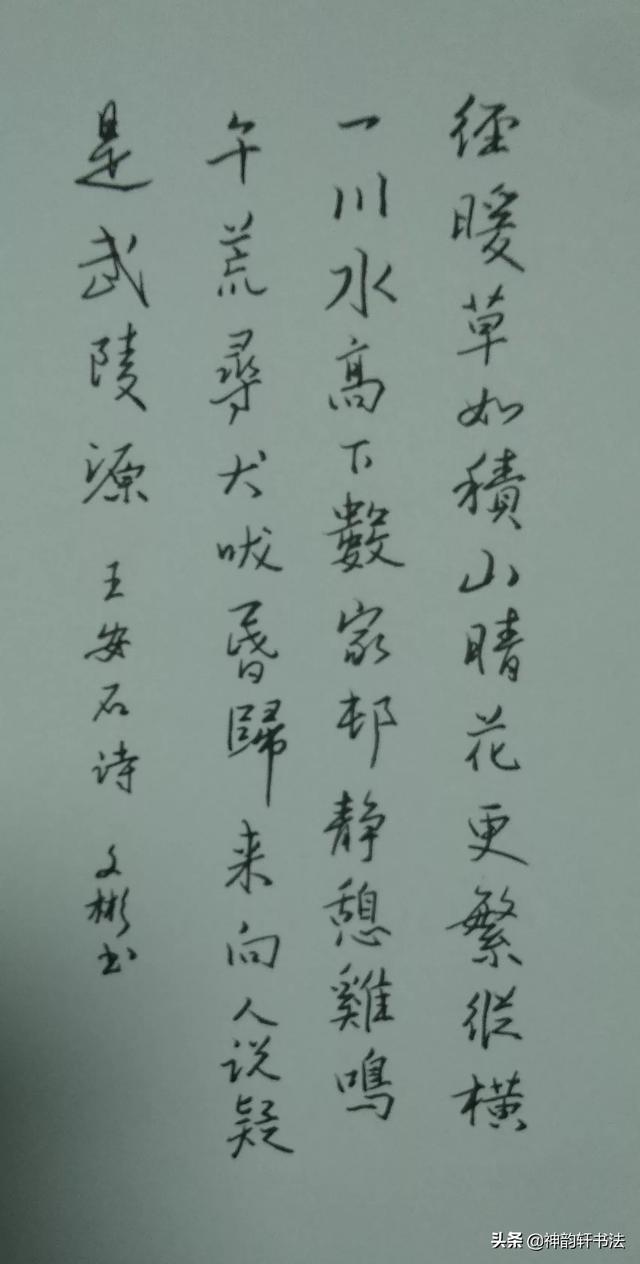 徑暖草如積山晴花更繁縱橫
一川水高下數家邨静憩雞鳴
午荒尋犬吠昏歸来向人说疑
是武陵源 王安石诗 文彬书
头条 @神韵轩书法